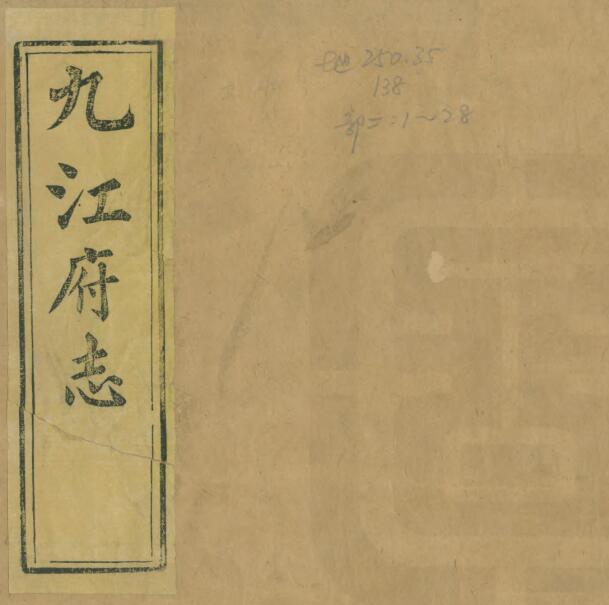 九江府志
地250.35
138
部二:1~28